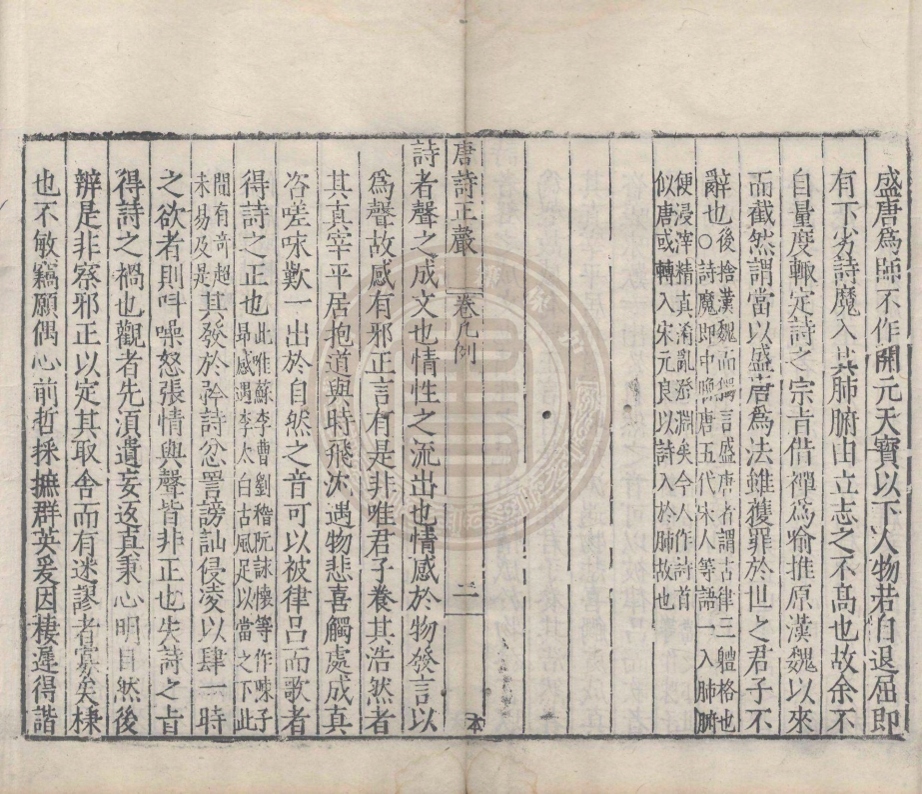 盛唐為師不作開元天寶以下人物若自退屈即
有下劣詩魔入其肺腑由立志之不髙也故余不
自量度輙定詩之宗旨借禪為喻推原漢魏以來
而截然謂當以盛唐為法雖獲罪於世之君子不
辭也
後捨漢魏而獨言盛唐者謂古律三體格也
○詩魔即中晚唐五代宋人等語一入肺腑
便浸滓精真淆亂澄淵矣今人作詩首
似唐或轉入宋元良以詩入於肺故也
唐詩正聲
卷凡例
二
本
詩者聲之成文也情性之流出也情感於物發言以
為聲故感有邪正言有是非唯君子養其浩然者
其真宰平居抱道與時飛沈遇物悲喜觸處成真
咨嗟咏歎一出於自然之音可以被律呂而歌者
得詩之正也
此雅蘇李曹劉嵇阮詠懷等作陳子
昂感遇李太白古風足以當之下此
間有奇超
未易及是
其發於矜詩忿詈謗訕侵凌以肆一時
之欲者則叫噪怒張情與聲皆非正也失詩之旨
得詩之禍也觀者先須遺妄返真秉心明目然後
辨是非察邪正以定其取舍而有迷謬者寡矣棣
也不敏竊願偶心前哲採摭群英爰因棲遲得諧